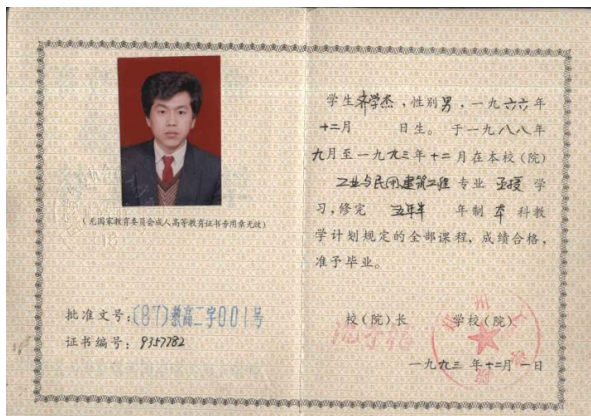 (无国家教育委员会成人高等教育证书专用章无效)
批准文号:(87)教高二字001号
证书编号:9357782
学生齐学杰,性别男,一九六六年
十二月 日生。于一九八八年
九月至一九九三年十二月在本校(院)
工业与民用建筑工程专业函授学
习,修完 五年半 年制 本 科教
学计划规定的全部课程,成绩合格,
准予毕业。
校(院)长 学校(院)
一九九三年十二月一日